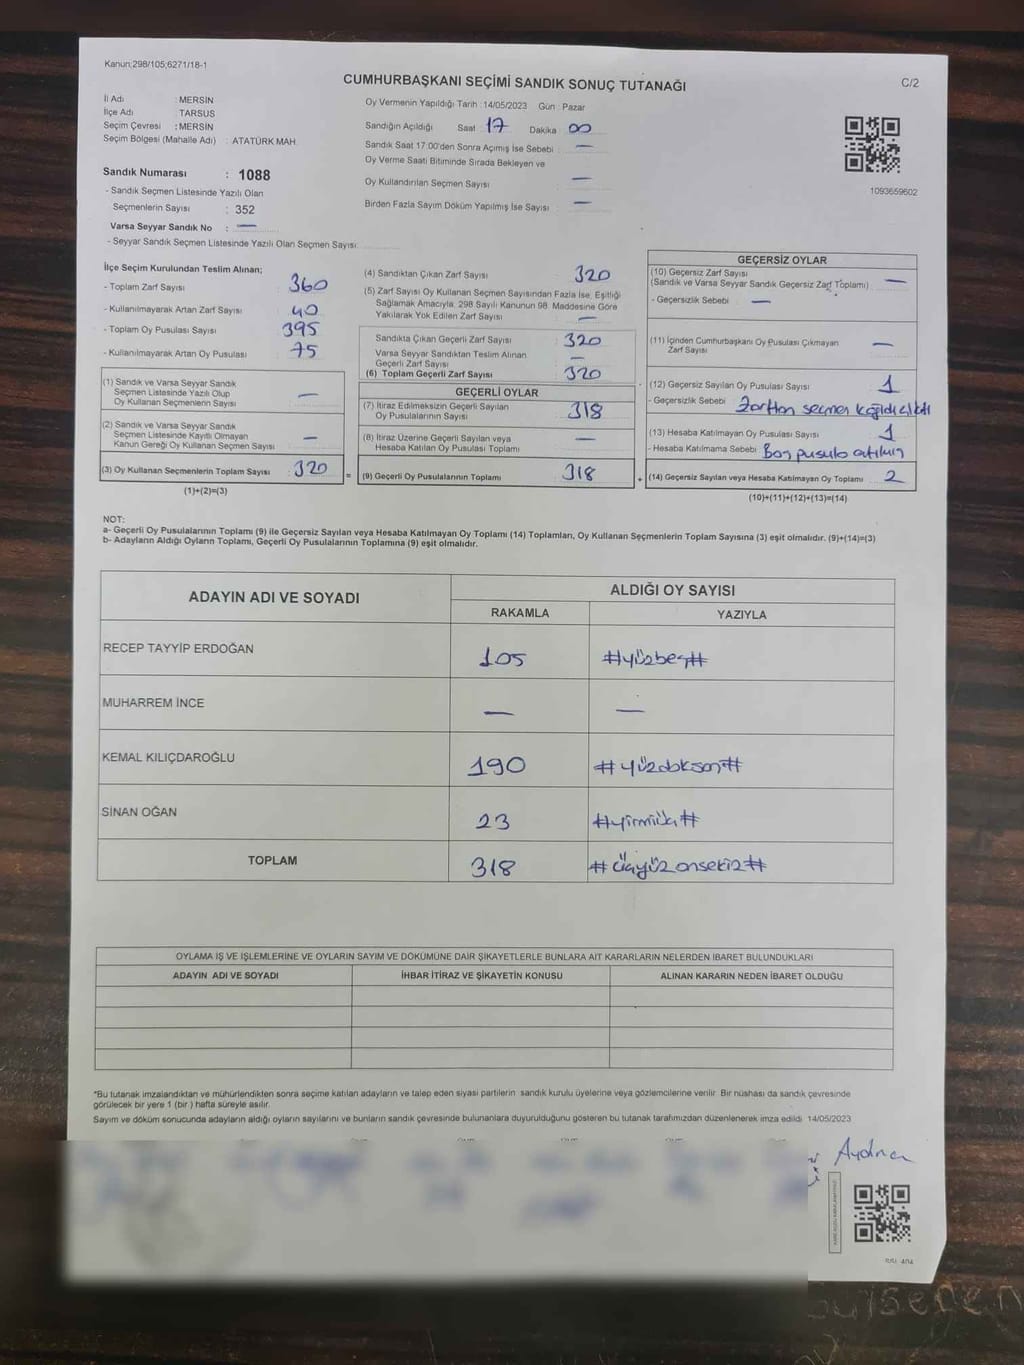 Kanun;298/105;6271/18-1
CUMHURBAŞKANI SEÇİMİ SANDIK SONUÇ TUTANAĞI
C/2
İl Adı : MERSİN
İlçe Adı : TARSUS
Seçim Çevresi : MERSİN
Seçim Bölgesi (Mahalle Adı) : ATATÜRK MAH.
Sandık Numarası : 1088
- Sandık Seçmen Listesinde Yazılı Olan
Seçmenlerin Sayısı : 352
Varsa Seyyar Sandık No : —
- Seyyar Sandık Seçmen Listesinde Yazılı Olan Seçmen Sayısı:
Oy Vermenin Yapıldığı Tarih : 14/05/2023 Gün : Pazar
Sandığın Açıldığı Saat 17 Dakika 00
Sandık Saat 17:00'den Sonra Açımış İse Sebebi : —
Oy Verme Saati Bitiminde Sırada Bekleyen ve
Oy Kullandırılan Seçmen Sayısı : —
Birden Fazla Sayım Döküm Yapılmış İse Sayısı : —
1093659602
İlçe Seçim Kurulundan Teslim Alınan;
- Toplam Zarf Sayısı : 360
- Kullanılmayarak Artan Zarf Sayısı : 40
- Toplam Oy Pusulası Sayısı : 395
- Kullanılmayarak Artan Oy Pusulası : 75
(1) Sandık ve Varsa Seyyar Sandık
Seçmen Listesinde Yazılı Olup
Oy Kullanan Seçmenlerin Sayısı : —
(2) Sandık ve Varsa Seyyar Sandık
Seçmen Listesinde Kayıtlı Olmayan
Kanun Gereği Oy Kullanan Seçmen Sayısı : —
(3) Oy Kullanan Seçmenlerin Toplam Sayısı : 320
(1)+(2)=(3)
(4) Sandıktan Çıkan Zarf Sayısı : 320
(5) Zarf Sayısı Oy Kullanan Seçmen Sayısından Fazla İse, Eşitliği
Sağlamak Amacıyla, 298 Sayılı Kanunun 98. Maddesine Göre
Yakılarak Yok Edilen Zarf Sayısı : —
Sandıkta Çıkan Geçerli Zarf Sayısı : 320
Varsa Seyyar Sandıktan Teslim Alınan
Geçerli Zarf Sayısı : —
(6) Toplam Geçerli Zarf Sayısı : 320
GEÇERLİ OYLAR
(7) İtiraz Edilmeksizin Geçerli Sayılan
Oy Pusulalarının Sayısı : 318
(8) İtiraz Üzerine Geçerli Sayılan veya
Hesaba Katılan Oy Pusulası Toplamı : —
= (9) Geçerli Oy Pusulalarının Toplamı : 318
GEÇERSİZ OYLAR
(10) Geçersiz Zarf Sayısı
(Sandık ve Varsa Seyyar Sandık Geçersiz Zarf Toplamı) : —
- Geçersizlik Sebebi : —
(11) İçinden Cumhurbaşkanı Oy Pusulası Çıkmayan
Zarf Sayısı : —
(12) Geçersiz Sayılan Oy Pusulası Sayısı : 1
- Geçersizlik Sebebi : Zarftan seçmen kağıdı çıktı
(13) Hesaba Katılmayan Oy Pusulası Sayısı : 1
- Hesaba Katılmama Sebebi : Boş pusula atılmış
+ (14) Geçersiz Sayılan veya Hesaba Katılmayan Oy Toplamı : 2
(10)+(11)+(12)+(13)=(14)
NOT:
a- Geçerli Oy Pusulalarının Toplamı (9) ile Geçersiz Sayılan veya Hesaba Katılmayan Oy Toplamı (14) Toplamları, Oy Kullanan Seçmenlerin Toplam Sayısına (3) eşit olmalıdır. (9)+(14)=(3)
b- Adayların Aldığı Oyların Toplamı, Geçerli Oy Pusulalarının Toplamına (9) eşit olmalıdır.
ADAYIN ADI VE SOYADI
ALDIĞI OY SAYISI
RAKAMLA YAZIYLA
RECEP TAYYİP ERDOĞAN 105 #yüzbeş#
MUHARREM İNCE — —
KEMAL KILIÇDAROĞLU 190 #yüzdoksan#
SİNAN OĞAN 23 #yirmiüç#
TOPLAM 318 #üçyüzonsekiz#
OYLAMA İŞ VE İŞLEMLERİNE VE OYLARIN SAYIM VE DÖKÜMÜNE DAİR ŞİKAYETLERLE BUNLARA AİT KARARLARIN NELERDEN İBARET BULUNDUKLARI
ADAYIN ADI VE SOYADI İHBAR İTİRAZ VE ŞİKAYETİN KONUSU ALINAN KARARIN NEDEN İBARET OLDUĞU
*Bu tutanak imzalandıktan ve mühürlendikten sonra seçime katılan adayların ve talep eden siyasi partilerin sandık kurulu üyelerine veya gözlemcilerine verilir. Bir nüshası da sandık çevresinde
görülecek bir yere 1 (bir ) hafta süreyle asılır.
Sayım ve döküm sonucunda adayların aldığı oyların sayılarını ve bunların sandık çevresinde bulunanlara duyurulduğunu gösteren bu tutanak tarafımızdan düzenlenerek imza edildi. 14/05/2023